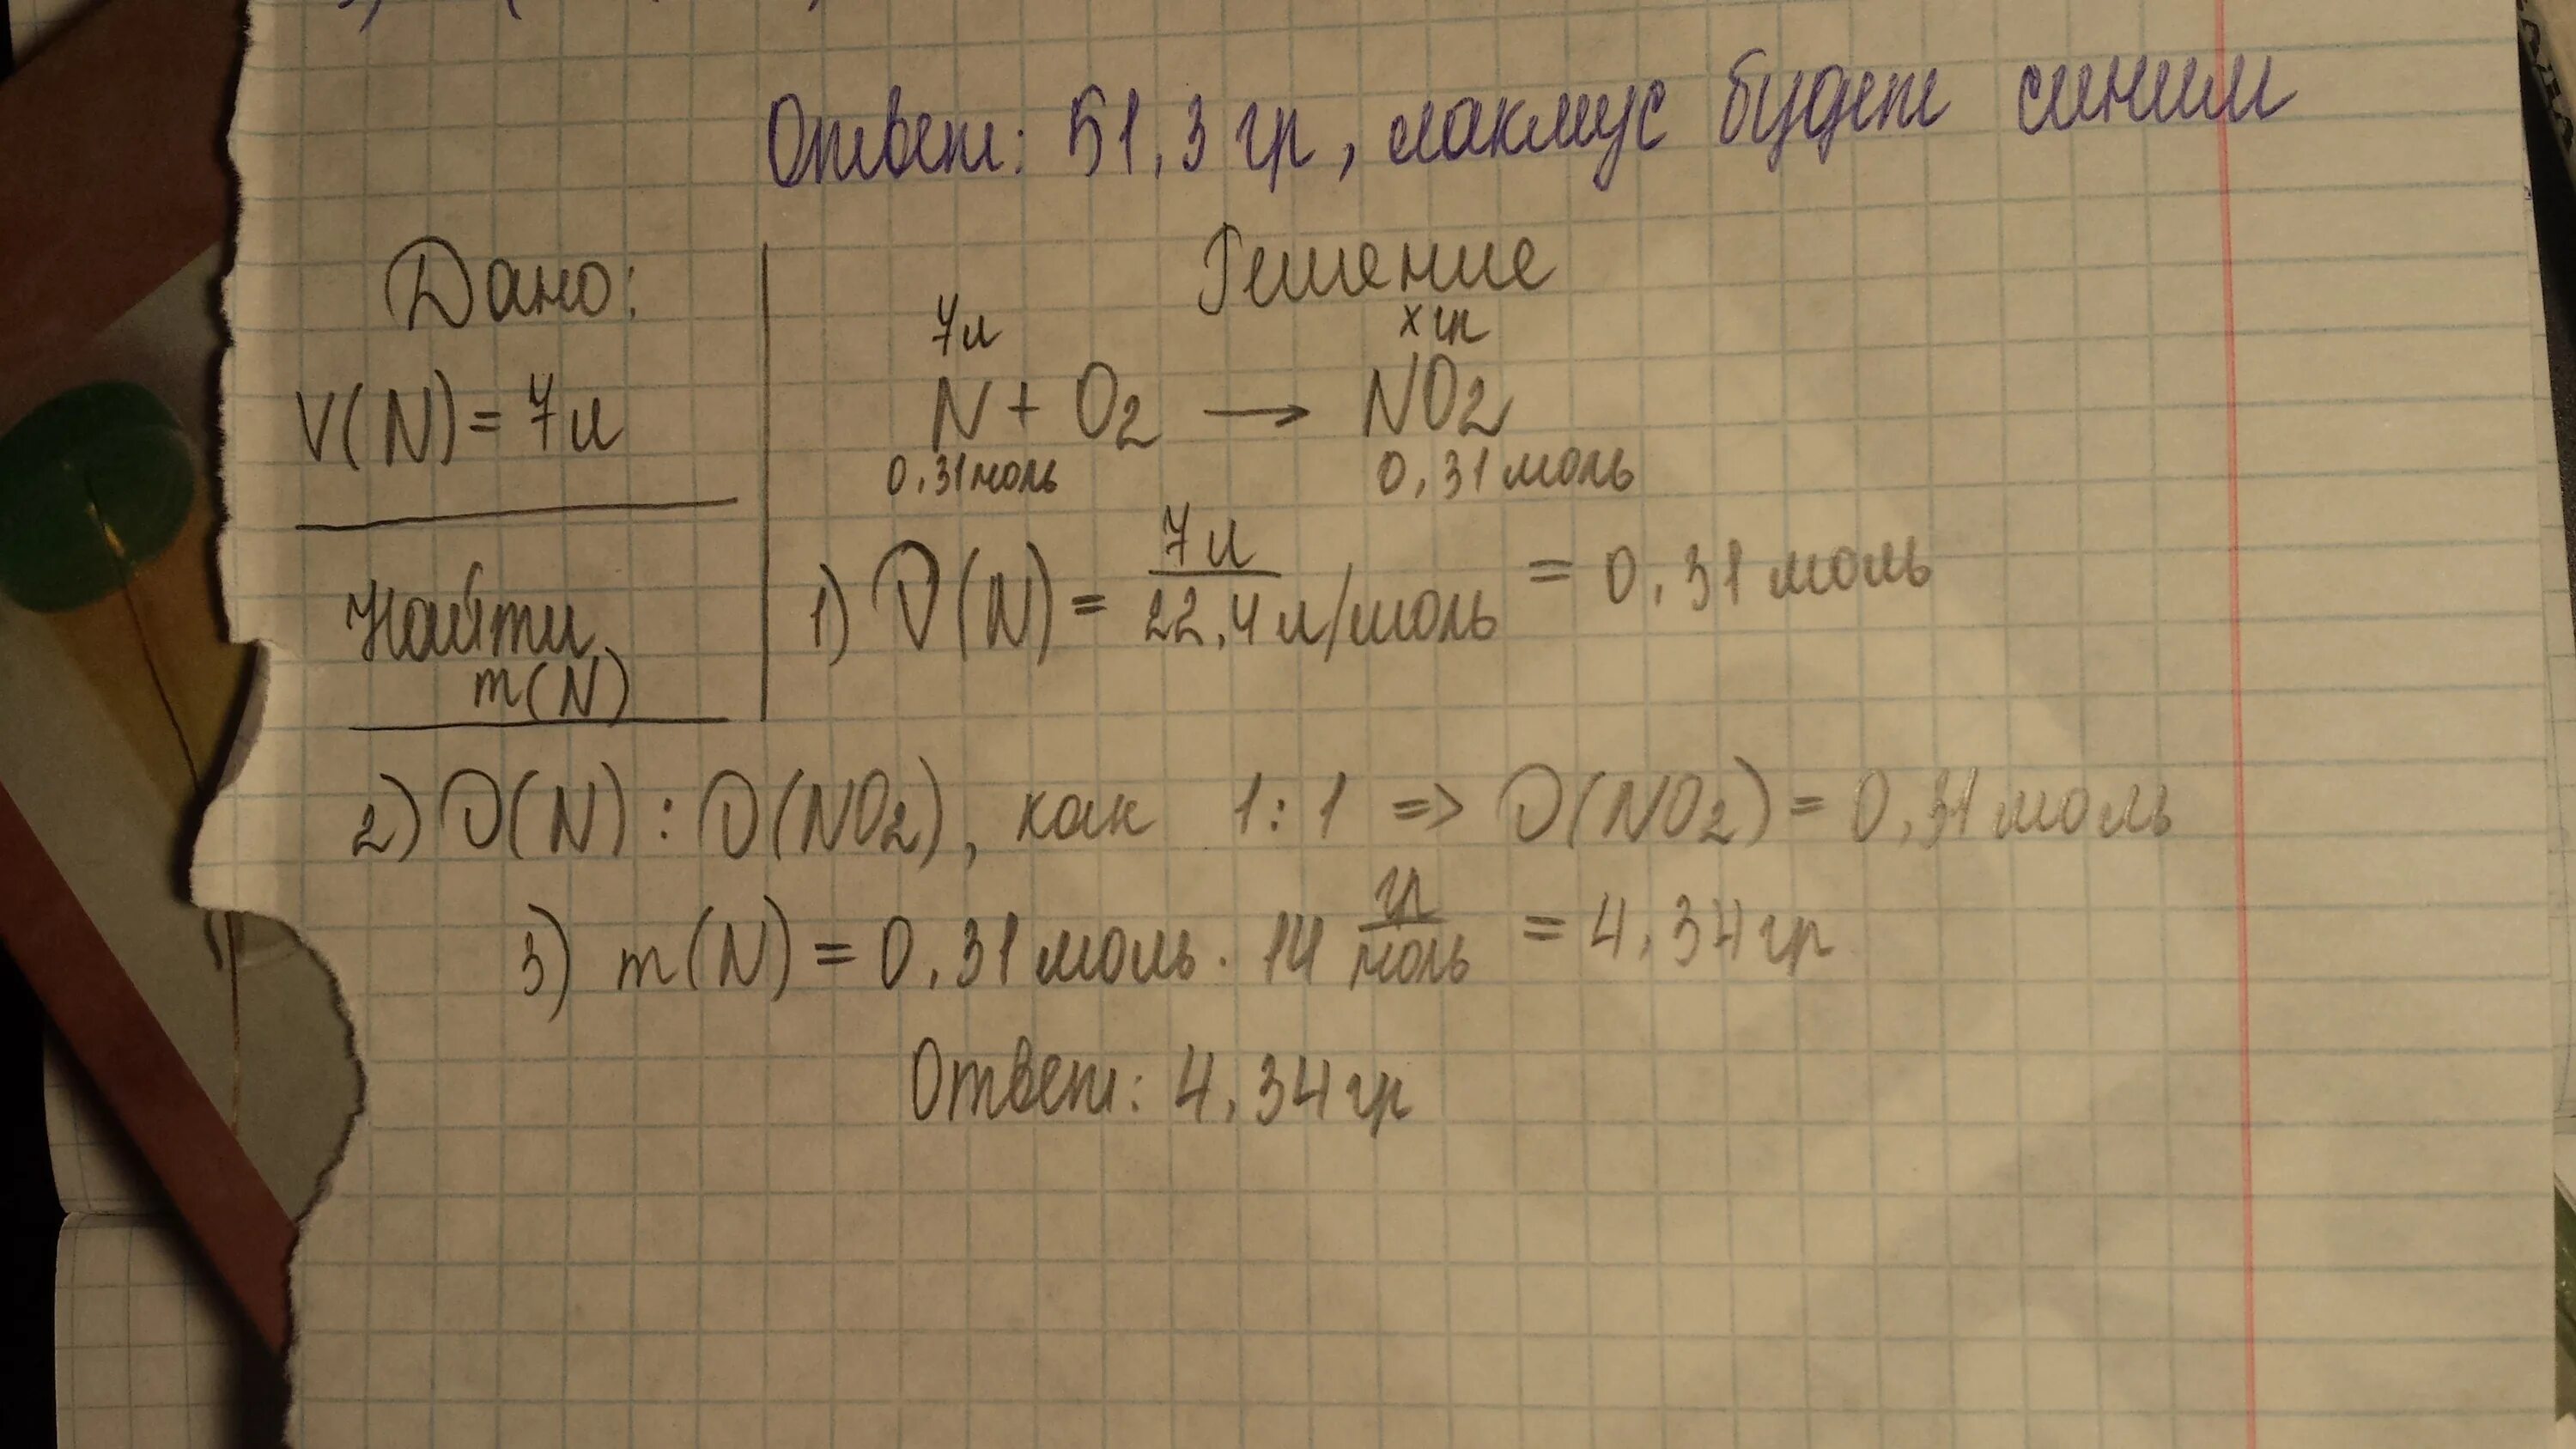 Ответ: 51,3 гр, лакмус будет синим
Дано:
Решение
7л
x гр
V(N) = 7л
N + O2 → NO2
0,31 моль
0,31 моль
1) ν(N) = 7л / 22,4 л/моль = 0,31 моль
Найти
m(N)
2) ν(N) : ν(NO2), как 1:1 => ν(NO2) = 0,31 моль
3) m(N) = 0,31 моль · 14 гр/моль = 4,34 гр
Ответ: 4,34 гр